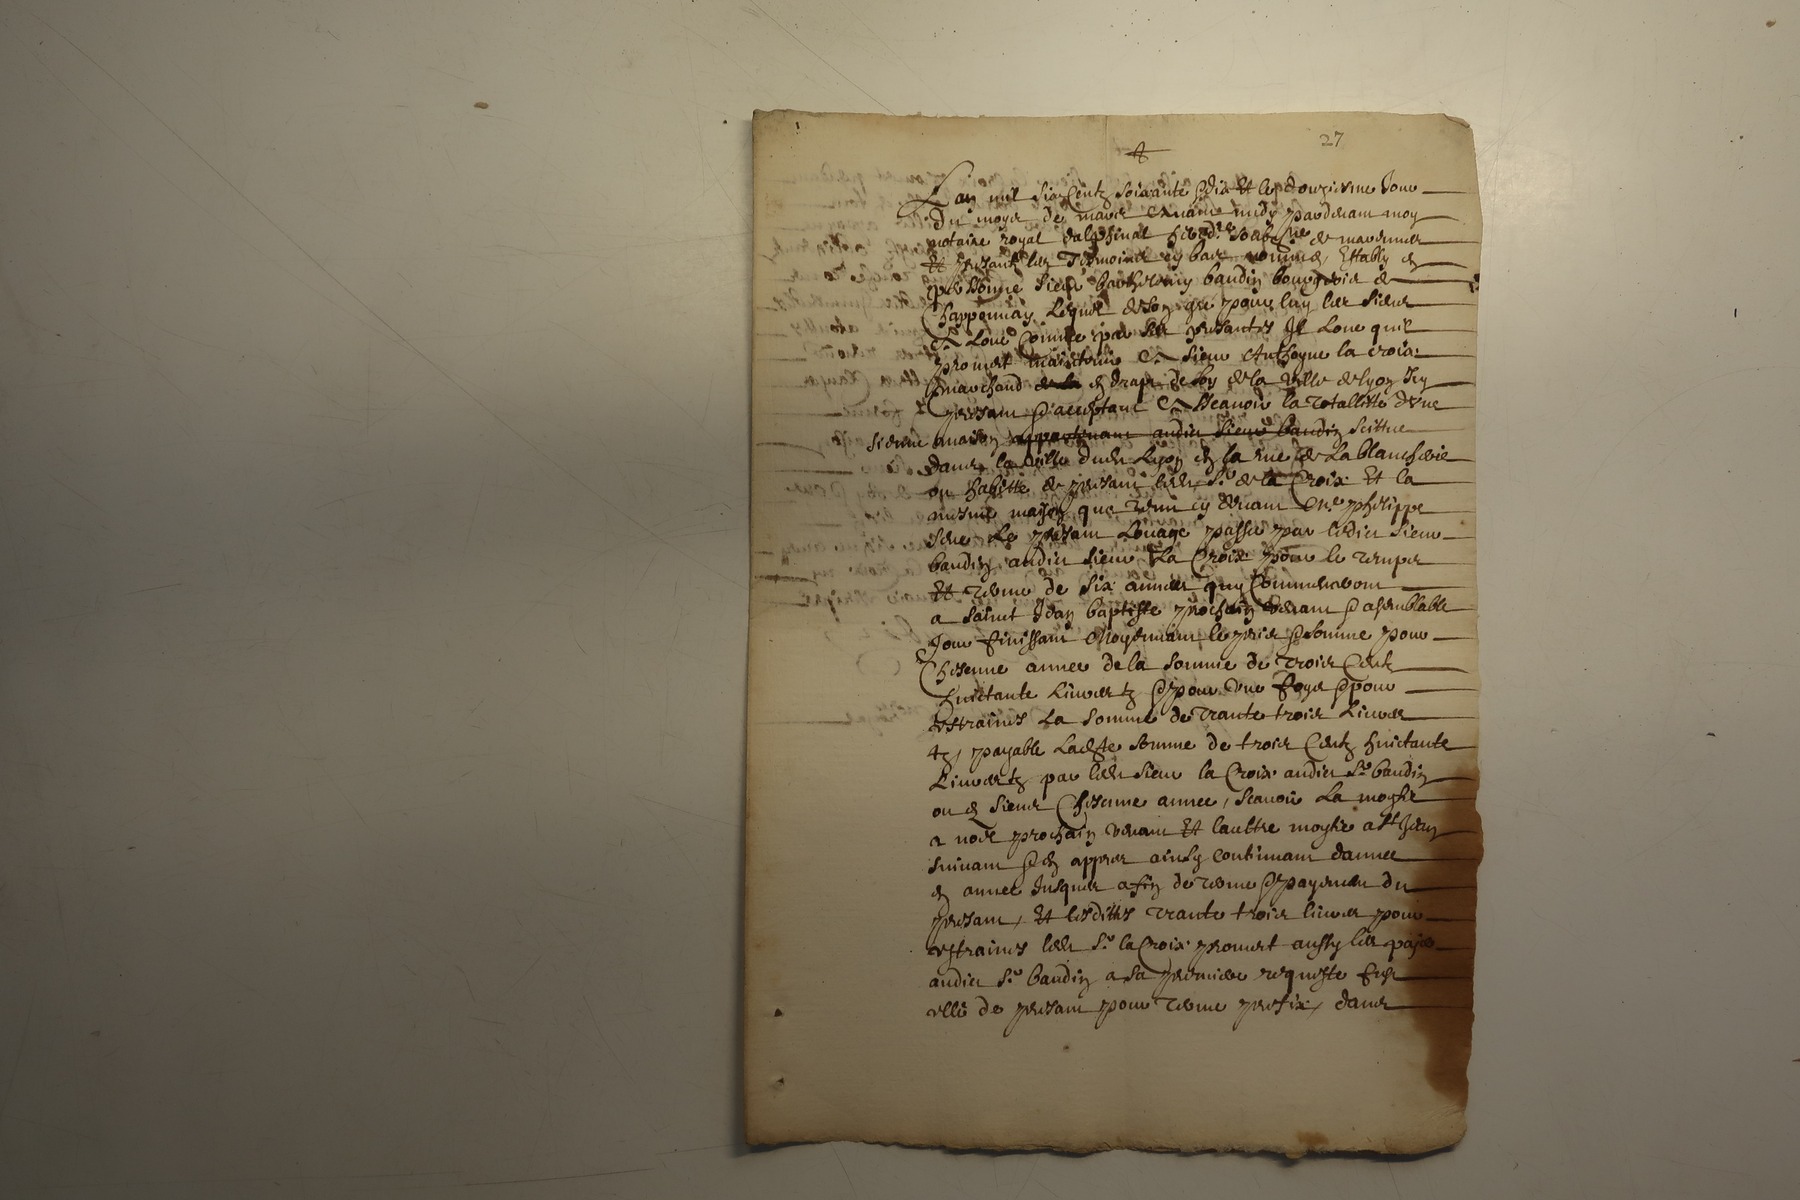 27
Lan mil six Centz soixante & dix Et le douzieme Jour
Du moys de mars avant midy pardevant moy
notaire royal dalphinal de marennes
Et presantz les Tesmoins cy bas nommés, Estably en
personne Sieur barthelemy baudin bourgeois de
Chapponnay Lequel de son gré pour luy les siens
A Loué Comme par ses presantes Il Loue quil
promet maintenir A Sieur Anthoyne la croix
marchand en draps de soy de la ville de lyon Icy
presant & acceptant Ascavoir la totallitté dune
sienne maison appartenant audict sieur baudin scittue
dans la ville dudit Lyon en la rue de La blancherie
ou habitte de presant ledit Sr de la Croix Et la
mesme mayson que tenu cy devant Me phelippe
Le presant Louage passé par ledict sieur
baudin audict sieur La Croix pour le temps
Et terme de six années quy Commenceront
a sainct Jean baptiste prochain venant & a semblable
Jour finissant Moyennant le prix & somme pour
Chescune année de la somme de trois Centz
huictante Livres tz & pour une foys & pour
estraines La somme de trante trois Livres
tz, payable Ladite somme de trois Centz huictante
Livres tz par ledit sieur la Croix audict Sr baudin
ou es siens Chescune année, scavoir La moytie
a noel prochain venant Et laultre moytie a St Jean
suivant & en appres ainsy continuant dannée
en année Jusques a fin de terme & payement du
presant, Et lesdittes trante trois livres pour
estraines ledit Sr la Croix promet aussy les payer
audict Sr baudin a sa premiere requeste
elle de presant pour terme prefix, dans